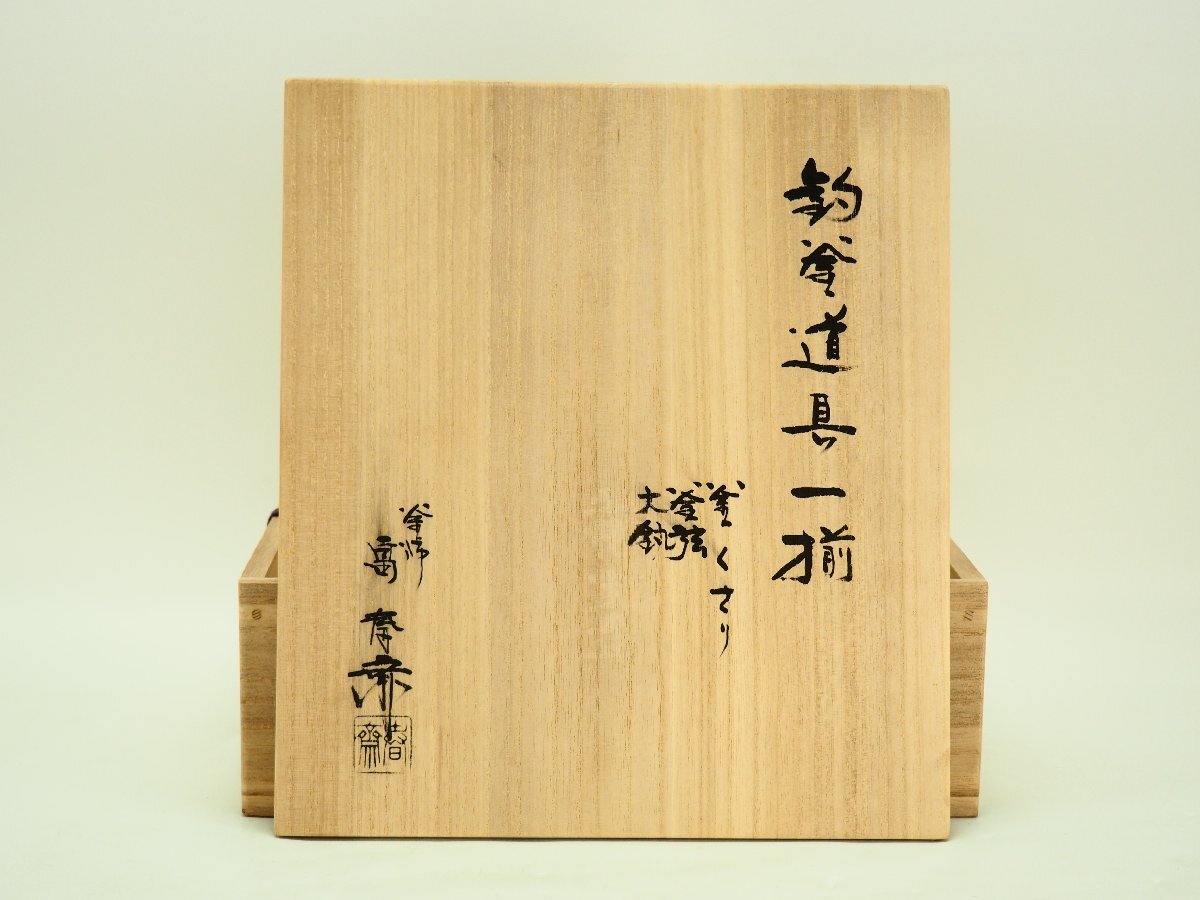 釣釜道具一揃
釜くさり
釜弦
大鐶
釜師
高橋春斎
春齋